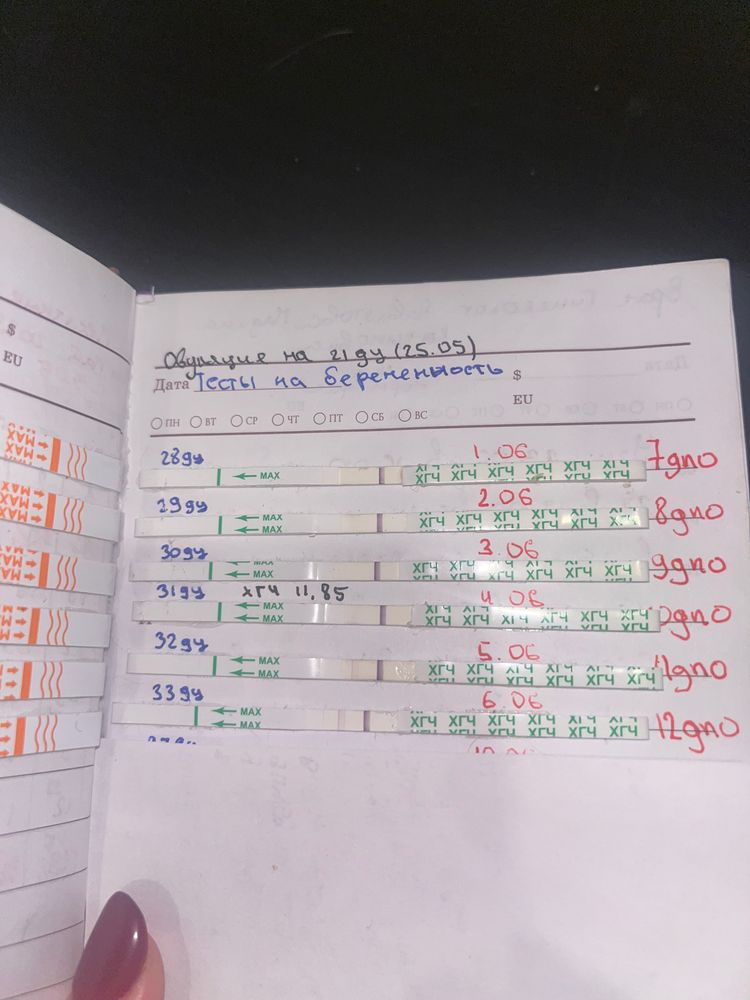 $
EU
Овуляция на 21 ду (25.05)
Дата Тесты на беременность $
EU
ПН ВТ СР ЧТ ПТ СБ ВС
28ду 1.06 7дпо
MAX ХГЧ ХГЧ ХГЧ ХГЧ ХГЧ ХГЧ
29ду 2.06 8дпо
MAX ХГЧ ХГЧ ХГЧ ХГЧ ХГЧ
MAX
30ду 3.06 9дпо
MAX ХГЧ ХГЧ ХГЧ ХГЧ ХГЧ ХГЧ
31ду ХГЧ 11,85 4.06 дпо
MAX ХГЧ ХГЧ ХГЧ ХГЧ ХГЧ ХГЧ
MAX
32ду 5.06 11дпо
MAX
MAX ХГЧ ХГЧ ХГЧ ХГЧ ХГЧ ХГЧ
33ду 6.06 12дпо
MAX ХГЧ ХГЧ ХГЧ ХГЧ ХГЧ ХГЧ
MAX ХГЧ ХГЧ ХГЧ ХГЧ ХГЧ ХГЧ